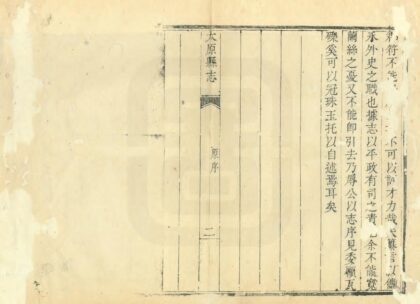 符不能不可以訓才力哉
承外史之職也據志以平政有司之責余不能寬
繭絲之憂又不能即引去乃辱公以志序見委顧瓦
礫奚可以冠珠玉托以自述焉耳矣
太原縣志
原序
二